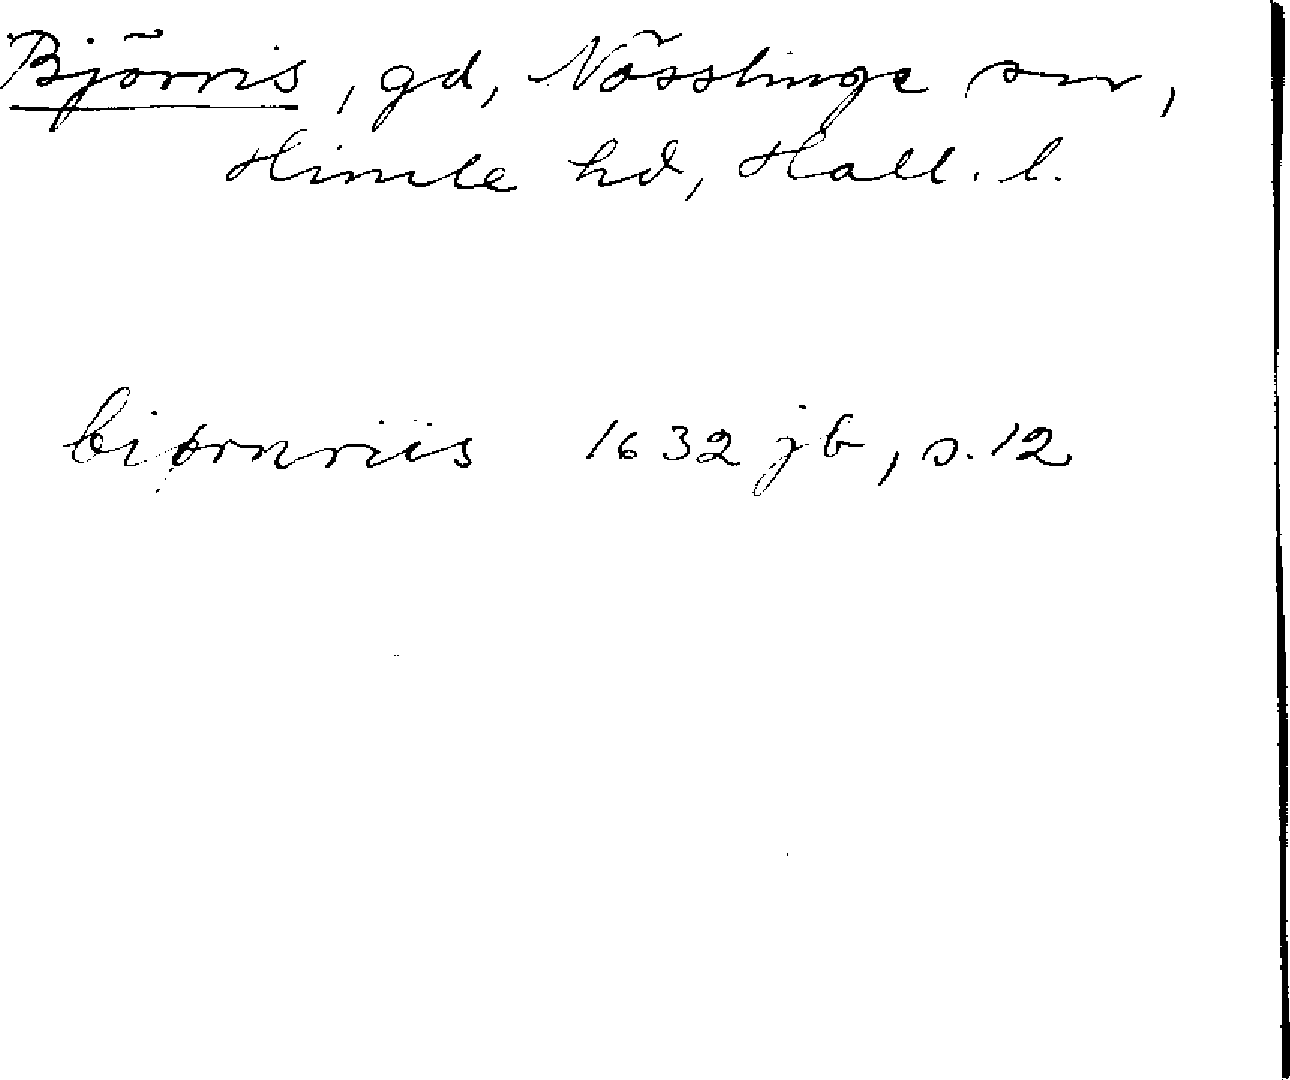 Björris, gd, Nösslinge sn,
Himle hd, Hall. l.
biørnriis 1632 jb, s. 12